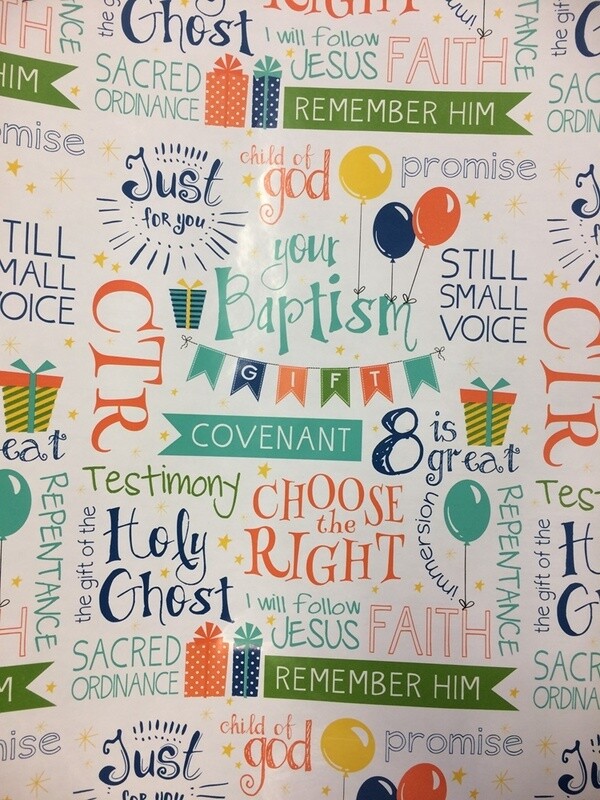 RIGHT
Ghost
I will follow
JESUS
FAITH
SACRED
ORDINANCE
REMEMBER HIM
HIM
REPENTANCE
the gift
SAC
ORDIN
omise
Just
for you
child of
god
promise
your
Baptism
GIFT
TILL
MALL
VOICE
STILL
SMALL
VOICE
CTR
CTR
COVENANT
8 is
great
eat
Testimony
Tes
CHOOSE
the
RIGHT
immersion
REPENTANCE
REPENTANCE
the gift of the
Holy
Ghost
the gift of the
H
G
I will follow
JESUS
FAITH
TH
SACRED
ORDINANCE
REMEMBER HIM
M
SACR
ORDINA
mise
Just
for you
child of
god
promise